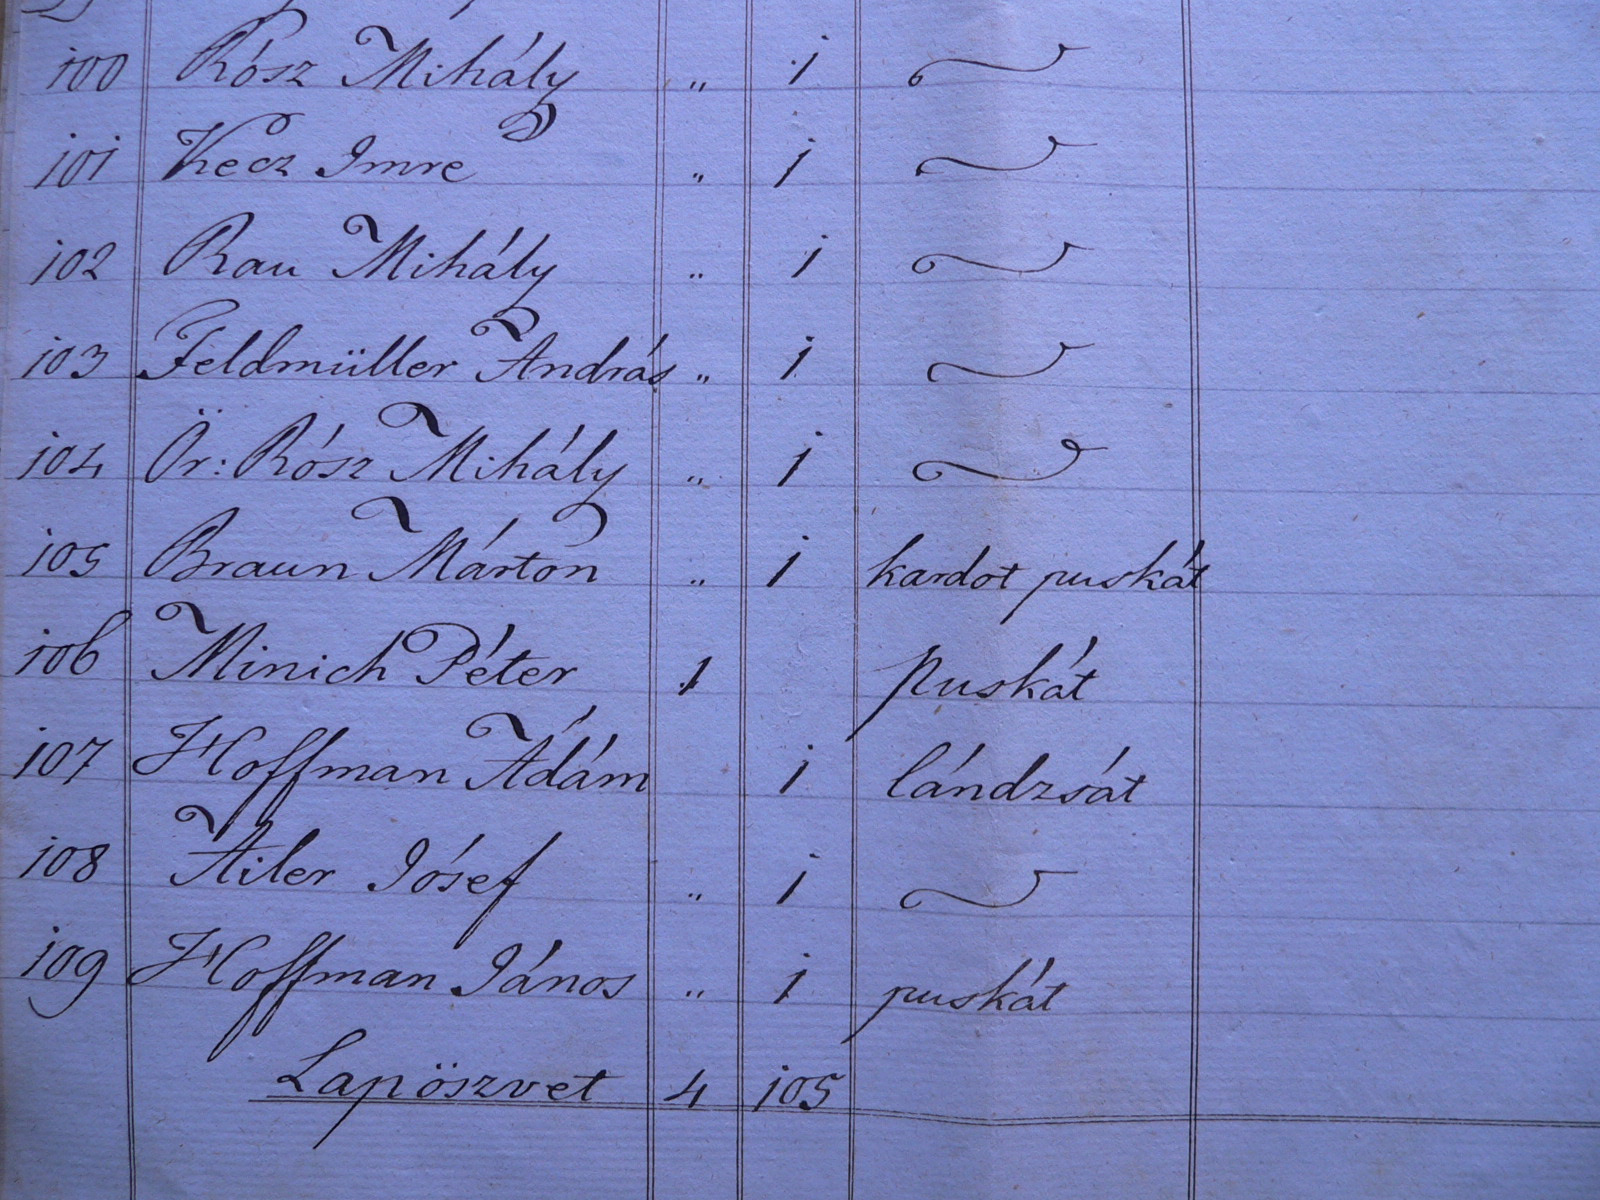 100 Rósz Mihály „ 1
101 Kecz Imre „ 1
102 Rau Mihály „ 1
103 Feldmüller András „ 1
104 Ör: Rósz Mihály „ 1
105 Braun Márton „ 1 kardot puskát
106 Minich Péter 1 puskát
107 Hoffman Ádám 1 lándzsát
108 Ailer Iósef „ 1
109 Hoffman János „ 1 puskát
Lapöszvet 4 105